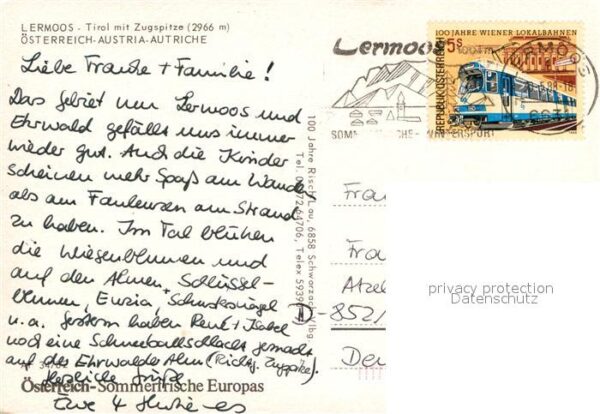 LERMOOS - Tirol mit Zugspitze (2966 m)
ÖSTERREICH-AUSTRIA-AUTRICHE
Liebe Frauke + Familie!
Das Gebiet um Lermoos und
Ehrwald gefällt uns immer
wieder gut. Auch die Kinder
scheinen mehr Spaß am Wandern
als am Faulenzen am Strand
zu haben. Im Tal blühen
die Wiesenblumen und
auf den Almen Schlüssel-
blumen, Enzian,
u.a. Gestern haben René + Isabel
noch eine Schneeballschlacht gemacht
auf der Ehrwalder Alm (Richtg. Zugspitze).
Herzliche Grüße
Eure 4
Österreich-Sommerfrische Europas
100 Jahre Risch-Lau, 6858 Schwarzach/Vlbg.
Tel. 05572/64706, Telex 59399
Lermoos
1004 m
SOMMERFRISCHE - WINTERSPORT
LERMOOS
100 JAHRE WIENER LOKALBAHNEN
5s
REPUBLIK ÖSTERREICH
Fra
Fra
Atzel
D-852/
Deu
privacy protection
Datenschutz